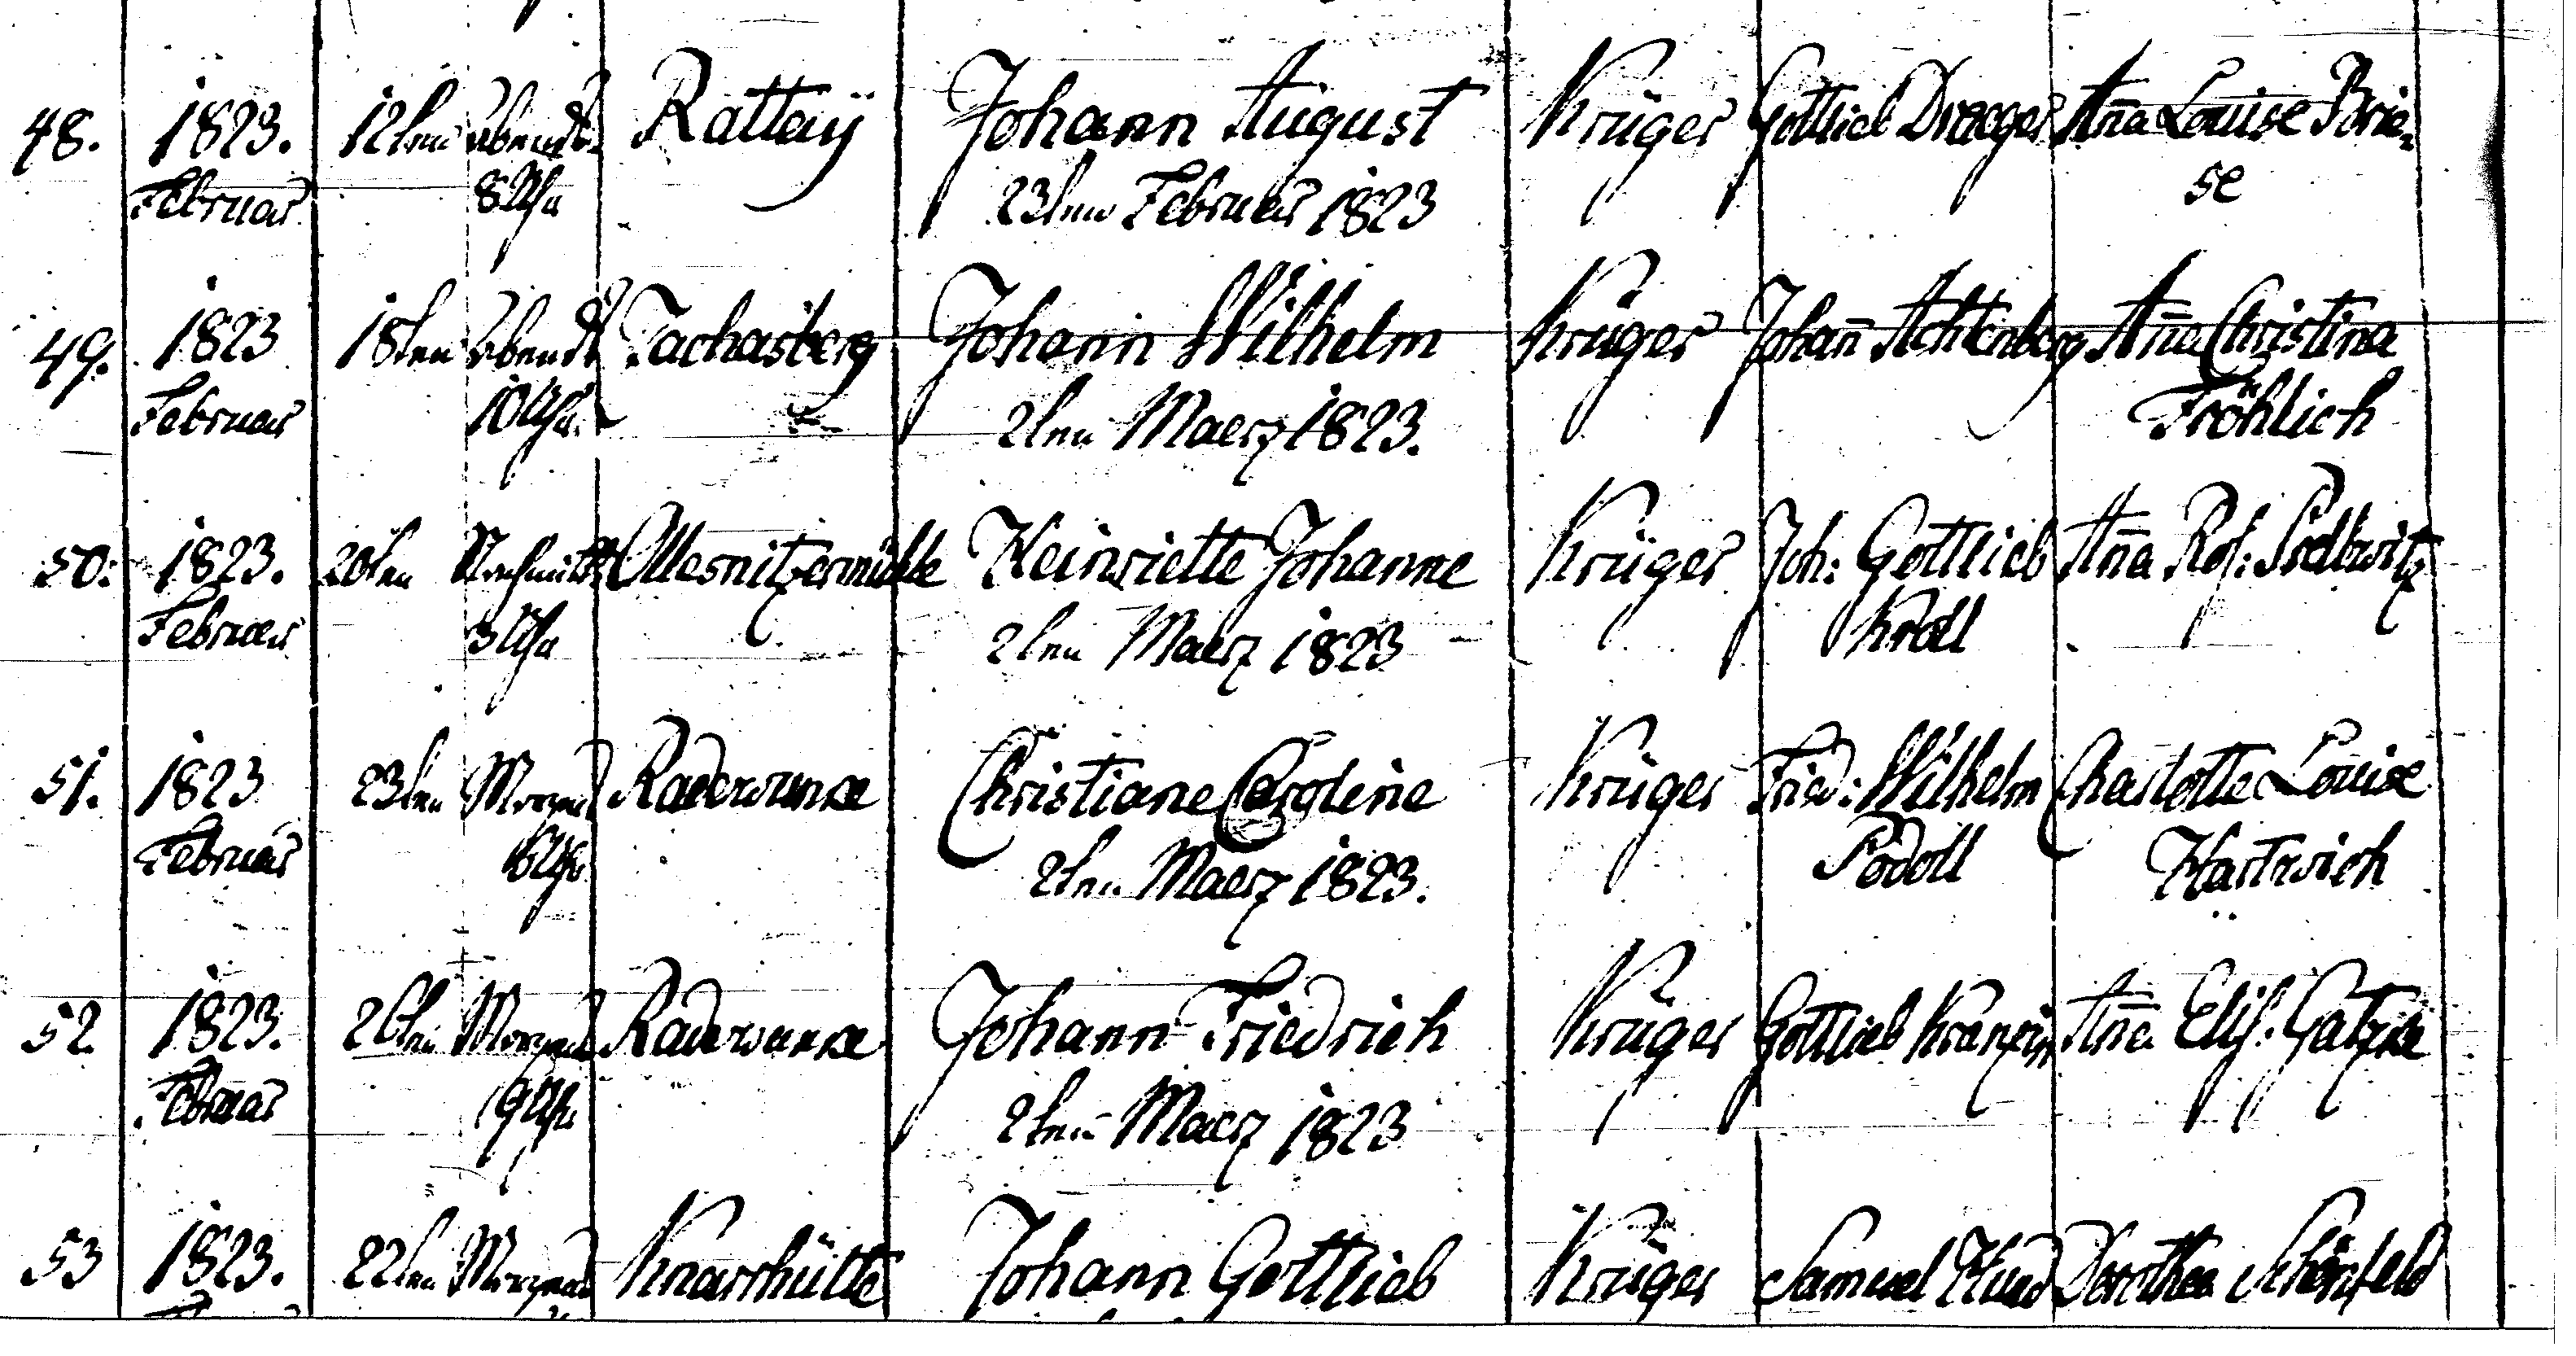 48. 1823. 12ten Abends Rattaÿ Johann August Krüger Gottlieb Draeger Ana Louise Brie-
Februar 8 Uhr 23ten Februar 1823 se
49. 1823 18ten Abends Zachasberg Johann Wilhelm Krüger Johan Achtenberg Ana Christina
Februar 10 Uhr 2ten Maerz 1823. Fröhlich
50. 1823. 20ten Nachmitt Heinriette Johanne Krüger Joh: Gottlieb Ana Ros:
Februar 3 Uhr 2ten Maerz 1823 Kroll
51. 1823 23ten Morgens Christiane Caroline Krüger Fried: Wilhelm Charlotte Louise
Februar 2ten Maerz 1823. Podoll Hartwich
52 1823. 26ten Morgens Johann Friedrich Krüger Gottlieb Ana Elis: Gatzke
Februar 9 Uhr 2ten Maerz 1823
53 1823. 22ten Morgens Knarrhütte Johann Gottlieb Krüger Samuel Dorothea Schönfeld